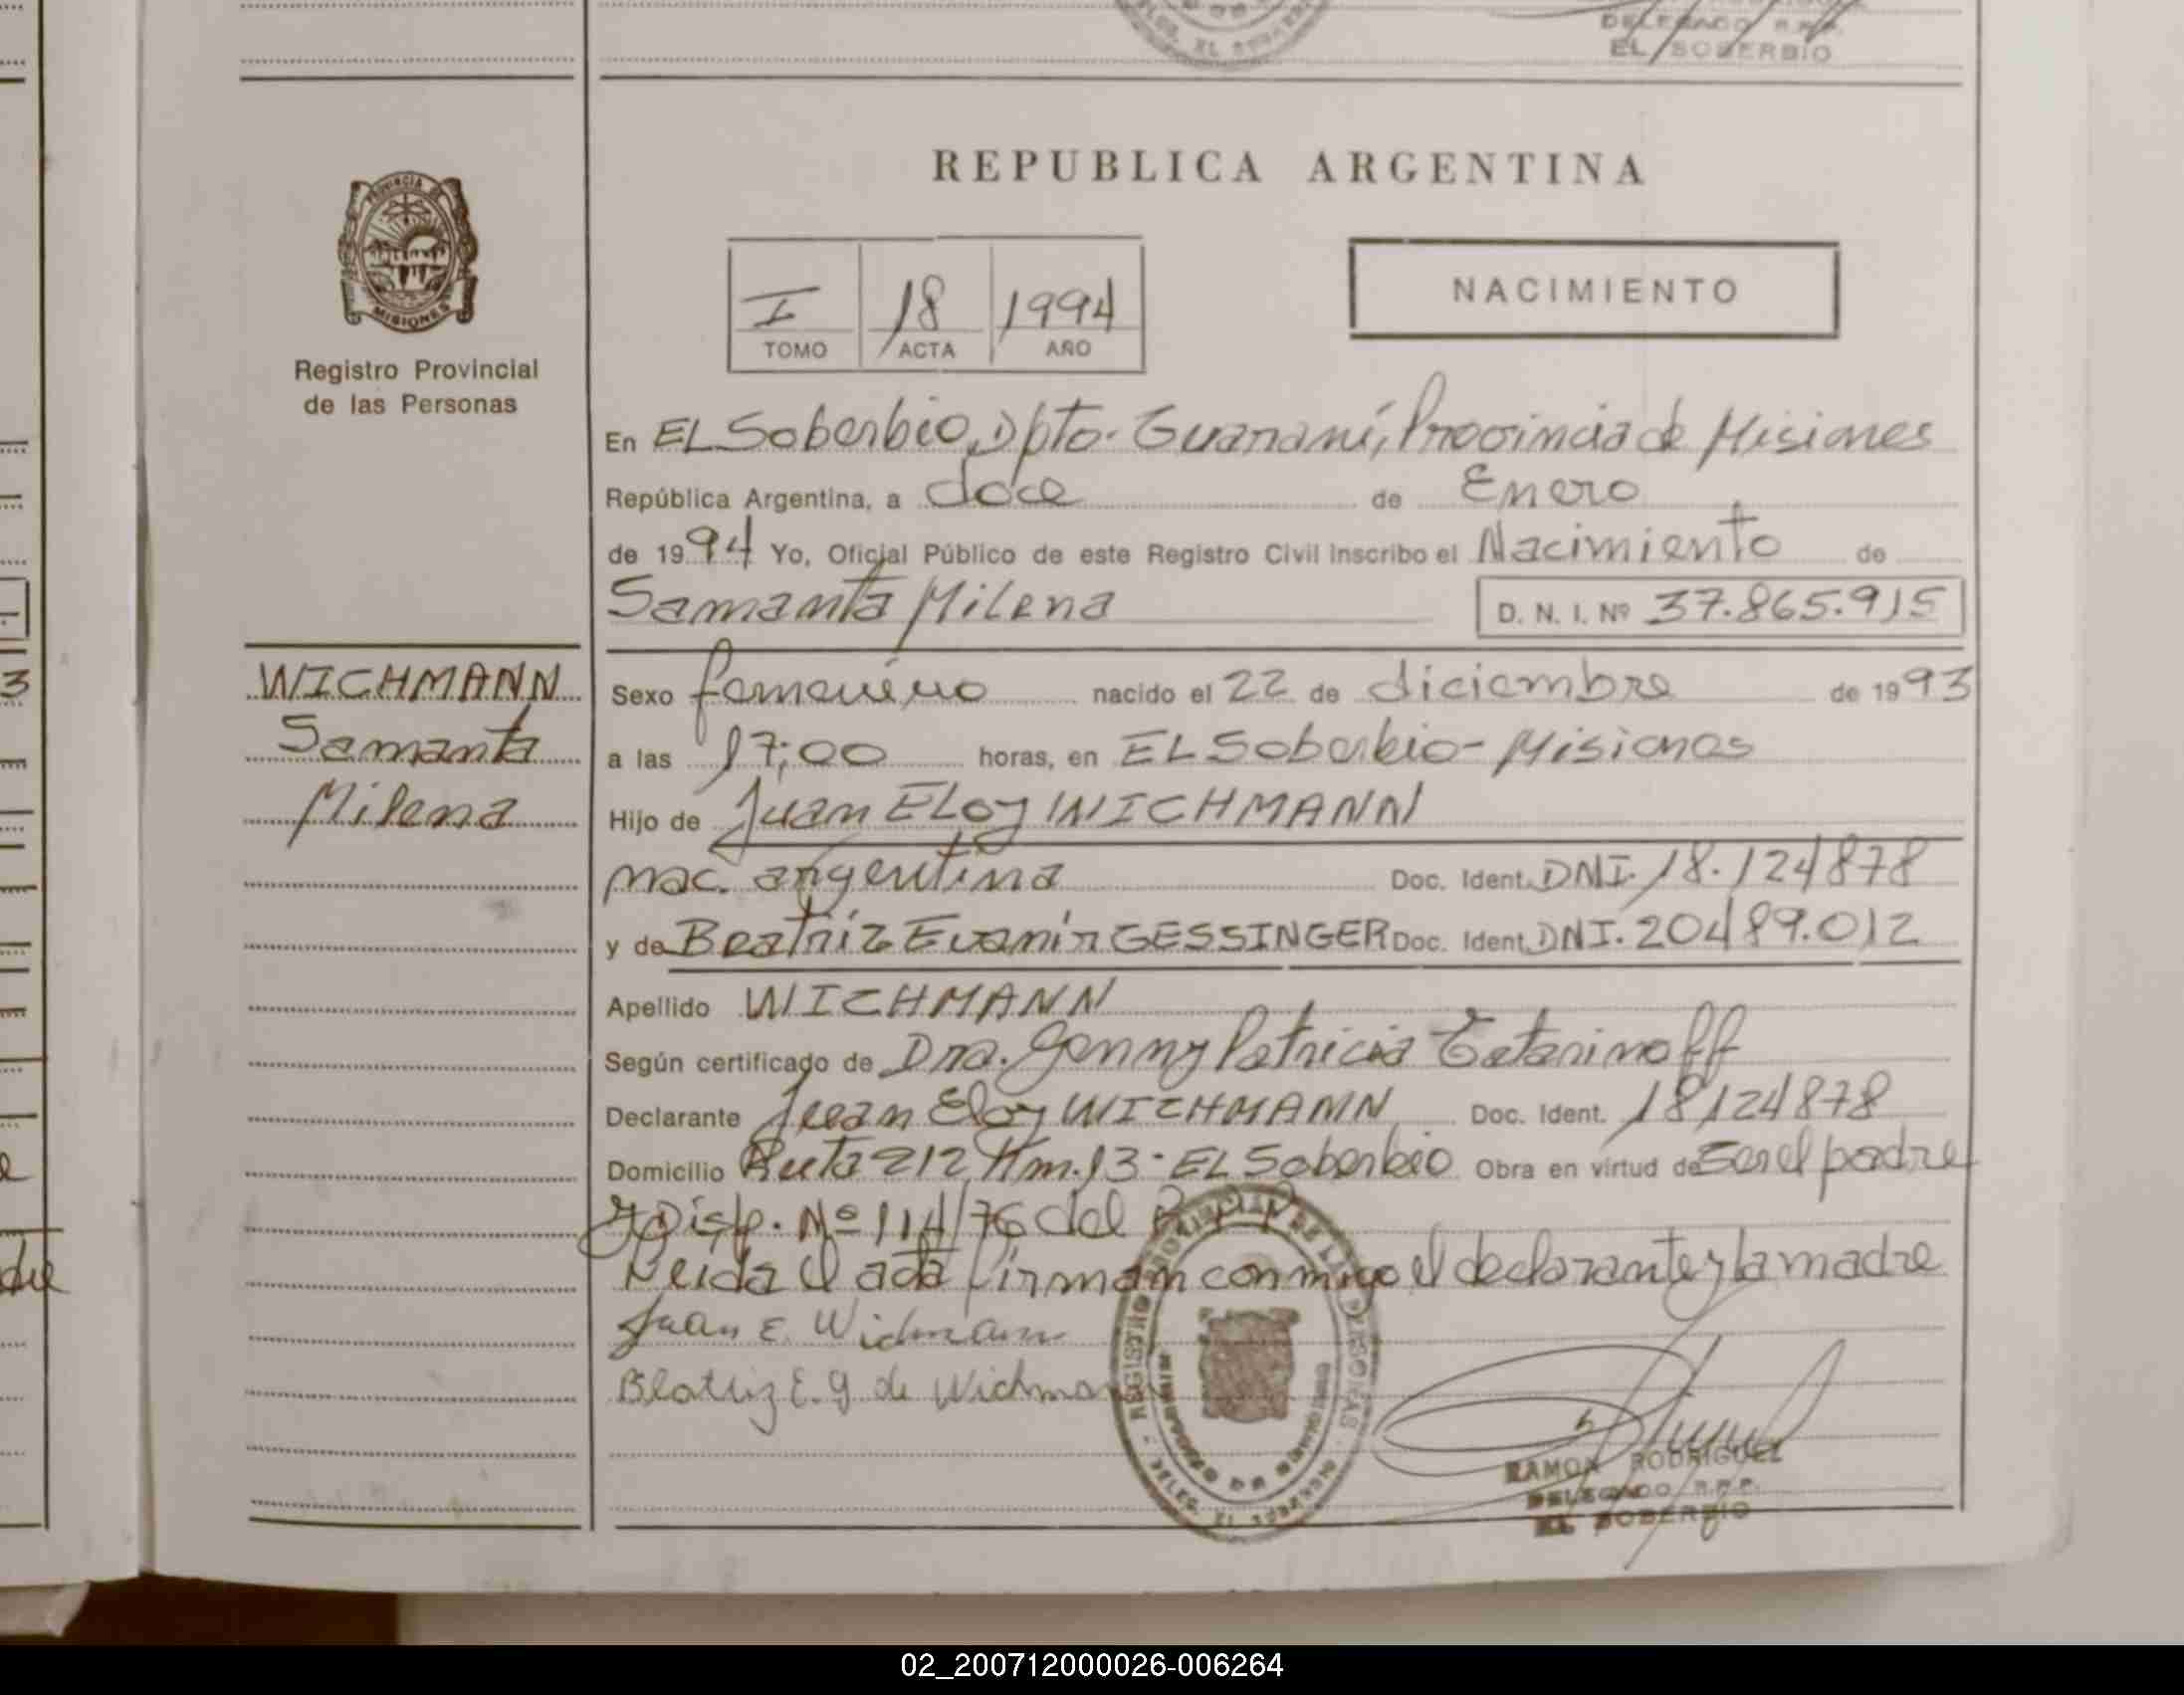 DELEGADO R.P.P.
EL SOBERBIO
PROVINCIA DE
MISIONES
Registro Provincial
de las Personas
REPUBLICA ARGENTINA
I 18 1994
TOMO ACTA AÑO
NACIMIENTO
En EL Soberbio, Dpto. Guaraní, Provincia de Misiones
República Argentina, a doce de Enero
de 1994 Yo, Oficial Público de este Registro Civil Inscribo el Nacimiento de
Samanta Milena D. N. I. Nº 37.865.915
WICHMANN
Samanta
Milena
Sexo femenino nacido el 22 de diciembre de 1993
a las 17:00 horas, en EL Soberbio - Misiones
Hijo de Juan ELoy WICHMANN
nac. argentina Doc. Ident. DNI. 18.124878
y de Beatriz Evanir GESSINGER Doc. Ident. DNI. 20489.012
Apellido WICHMANN
Según certificado de Dra. Genny Patricia Tatarinoff
Declarante Juan Eloy WICHMANN Doc. Ident. 18124878
Domicilio Ruta 212 Km. 13 - EL Soberbio Obra en virtud de Ser el padre
y Disp. Nº 114/76 del
Leida el acta firman conmigo el declarante y la madre
Juan E. Wichmann
Beatriz E. G de Wichmann
RAMON RODRIGUEZ
DELEGADO R.P.P.
EL SOBERBIO
02_200712000026-006264